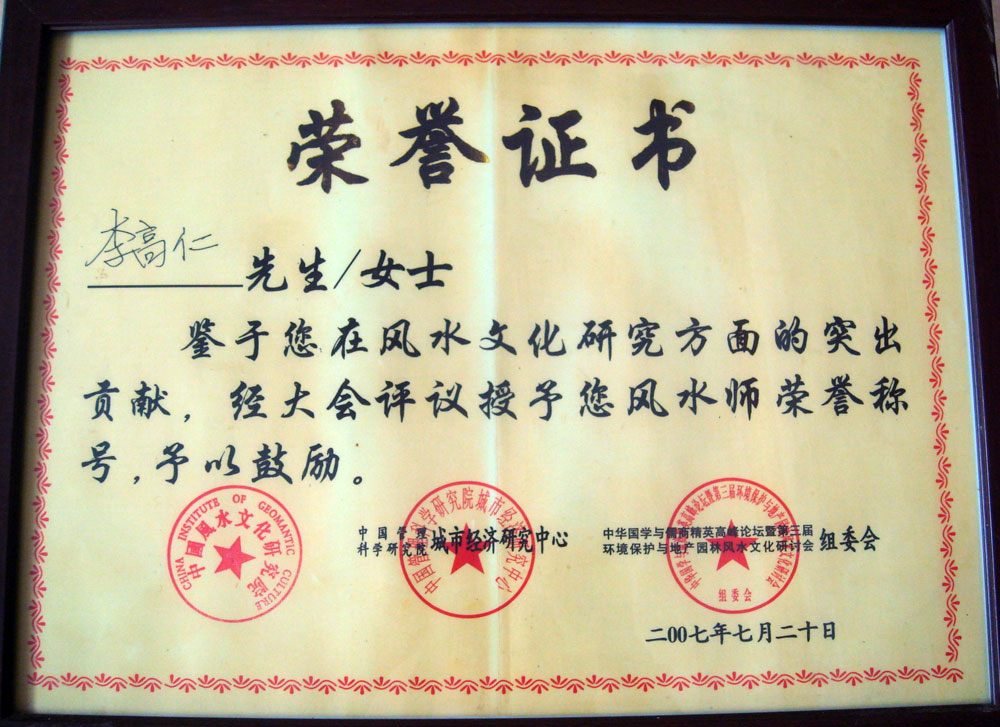 荣誉证书
李高仁 先生/女士
鉴于您在风水文化研究方面的突出
贡献，经大会评议授予您风水师荣誉称
号，予以鼓励。
CHINA INSTITUTE OF GEOMANTIC CULTURE
中國風水文化研究院
中国管理
科学研究院 城市经济研究中心
中国管理科学研究院城市经济研究中心
中华国学与儒商精英高峰论坛暨第三届
环境保护与地产园林风水文化研讨会 组委会
组委会
二00七年七月二十日